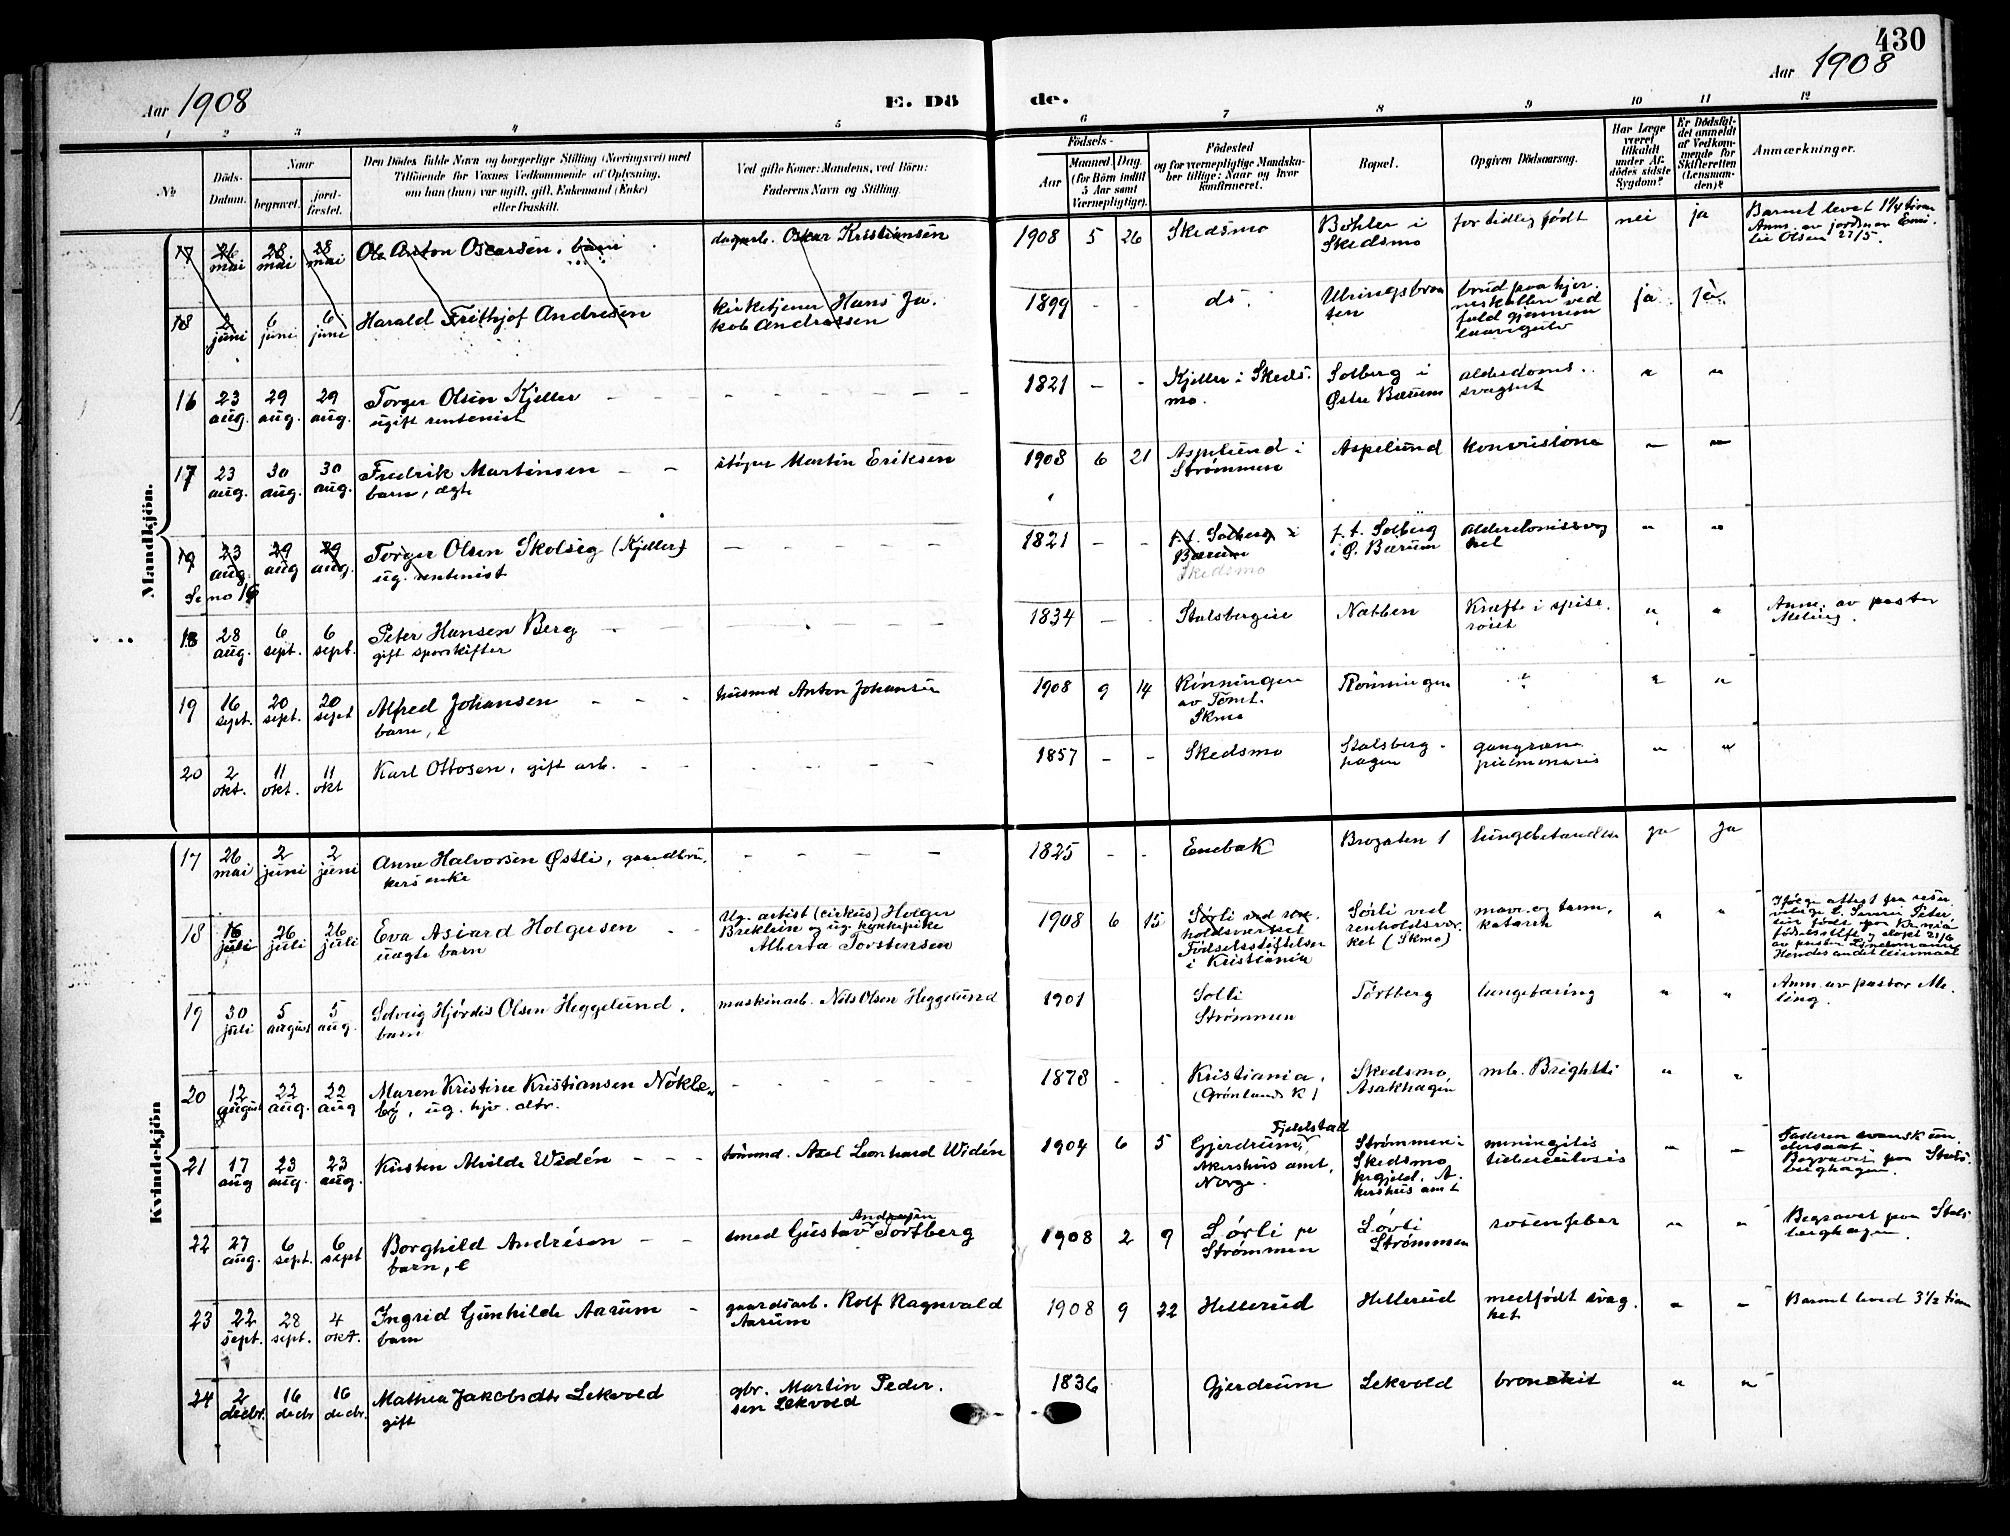 430
Aar 1908
E. Dö
de.
Aar 1908
1 2 3 4 5 6 7 8 9 10 11 12
№
Döds-Datum.
Naar
begravet.
jordfæstet.
Den Dödes fulde Navn og borgerlige Stilling (Næringsvei) med
Tilföiende for Voxnes Vedkommende af Oplysning,
om han (hun) var ugift, gift, Enkemand (Enke)
eller fraskilt.
Ved gifte Koner: Mandens, ved Börn:
Faderens Navn og Stilling.
Födsels-
Aar
Maaned. Dag.
(for Börn indtil
5 Aar samt
Værnepligtige).
Födested
og for værnepligtige Mandska-
ber tillige: Naar og hvor
konfirmeret.
Bopæl.
Opgiven Dödsaarsag.
Har Læge
været
tilkaldt
under Af-
dödes sidste
Sygdom?
Er Dödsfal-
det anmeldt
af Vedkom-
mende for
Skifteretten
(Lensman-
den)?
Anmærkninger.
Mandkjön.
17 26 mai 28 mai 28 mai Ole Anton Oscarsen, barn dagarb. Oskar Kristiansen 1908 5 26 Skedsmo Böhler i Skedsmo for tidlig født nei ja Barnet levet 1¼ time Anm. av jordmor Emilie Olsen 27/5.
18 2 juni 6 juni 6 juni Harald Frithjof Andresen kirketjener Hans Jakob Andresen 1899 - - do. brud paa hjerneskallen ved fald gjennem laavegulv ja ja
16 23 aug. 29 aug. 29 aug. Torger Olsen Kjeller ugift rentenist 1821 - - Kjeller i Skedsmo. Solberg i Østre Bærum alderdomssvaghet " "
17 23 aug. 30 aug. 30 aug. Fredrik Martinsen barn, ægte støper Martin Eriksen 1908 6 21 Aspelund i Strømmen Aspelund konvulsione " "
19 23 aug. 29 aug 29 aug. Torger Olsen Skolseg (Kjeller) ug. rentenist 1821 - - f. t. Solberg i Bærum Skedsmo f. t. Solberg i Ø. Bærum alderdomssvaghet " "
Se no 16
18 28 aug. 6 sept. 6 sept. Peter Hansen Berg gift sporskifter 1834 - - Stalsbergeie Nabben Kræft i spiserøret " " Anm. av pastor Meling.
19 16 sept. 20 sept. 20 sept Alfred Johansen barn, e husmd Anton Johansen 1908 9 14 Rønningen av Tomt. Skmo Rønningen " " "
20 2 okt. 11 okt. 11 okt Karl Ottosen, gift arb. 1857 - - Skedsmo Stalsberghagen gangræna pulmonaris " "
Kvindekjön
17 26 mai 2 juni 2 juni Anne Halvorsen Østli, gaardbrukers enke 1825 - - Enebak Brogaten 1 lungebetændelse ja ja
18 16 juli 26 juli 26 juli Eva Asiard Holgersen uægte barn Ug. artist (cirkus) Holger Breklein og ug. kokkepike Alberta Torstensen 1908 6 15 Sørli ved renholdsverket Fødselsstiftelsen i Kristiania Sørli ved renholdsverket (Skmo) mave og tarmkatarrh " "
19 30 juli 5 august 5 aug. Solveig Hjørdis Olsen Heggelund. barn maskinarb. Nils Olsen Heggelund 1901 Solli Strømmen Tortberg lungetæring " " Anm. av pastor Meling.
20 12 august 22 aug. 22 aug Maren Kristine Kristiansen Nökleby, ug. hjv. dtr. 1878 - - Kristiania, (Grønlands K) Skedsmo Asakhagen mb. Brightii " "
21 17 aug 23 aug. 23 aug. Kirsten Alvilde Widén tömmd. Axel Leonhard Widén 1904 6 5 Gjerdrum, Fjelstad Akershus amt, Norge. Strømmen i Skedsmo prgjeld, Akershus amt meningitis tuberculosis " " Faderen svensk undersaat Begravet paa Stalsberghagen.
22 27 aug. 6 sept. 6 sept Borghild Andrésen barn, e smed Gustav Andresen Tortberg 1908 2 9 Sørli pr Strømmen Sörli Strømmen rosenfeber " " Begravet paa Stalsberghagen.
23 22 sept. 28 sept. 4 okt. Ingrid Gunhilde Aarum barn gaardsarb. Rolf Ragnvald Aarum 1908 9 22 Hellerud Hellerud medfødt svaghet " " Barnet leved 3½ time
24 2 decbr. 16 decbr 16 decbr. Mathea Jakobsdtr Lekvold gift gbr. Martin Pedersen Lekvold 1836 Gjerdrum Lekvold bronchit " "